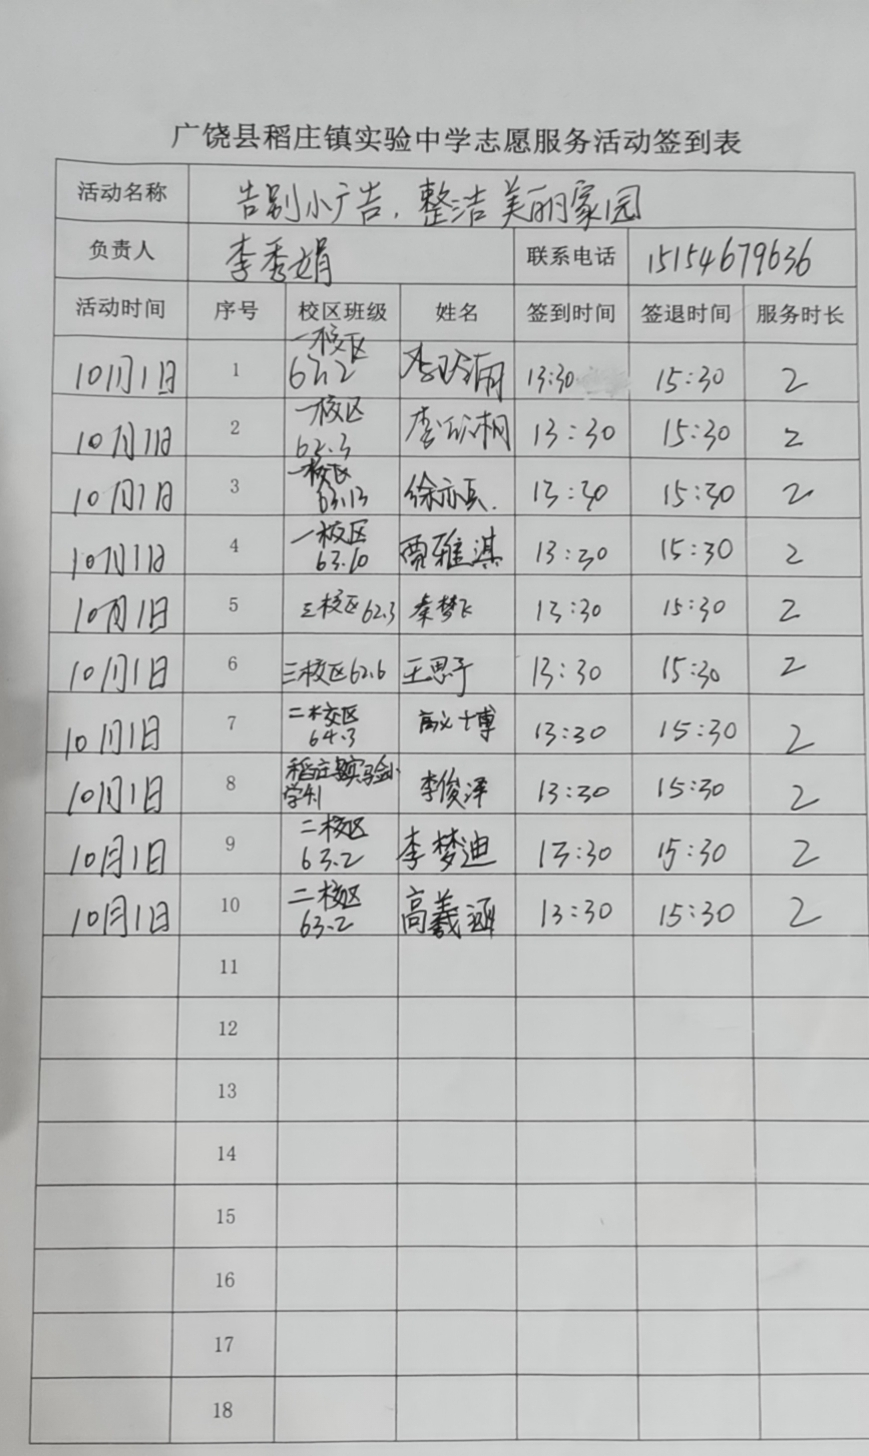 广饶县稻庄镇实验中学志愿服务活动签到表
活动名称 告别小广告，整洁美丽家园
负责人 李秀娟 联系电话 15154679636
活动时间 序号 校区班级 姓名 签到时间 签退时间 服务时长
10月1日 1 一校区 13:30 15:30 2
10月1日 2 一校区 62.3 李 桐 13:30 15:30 2
10月1日 3 一校区 63.13 徐亦 13:30 15:30 2
10月1日 4 一校区 63.10 贾雅淇 13:30 15:30 2
10月1日 5 三校区 62.3 秦梦飞 13:30 15:30 2
10月1日 6 三校区 62.6 王思予 13:30 15:30 2
10月1日 7 二校区 64.3 高 博 13:30 15:30 2
10月1日 8 稻庄镇实验小学 李俊泽 13:30 15:30 2
10月1日 9 二校区 63.2 李梦迪 13:30 15:30 2
10月1日 10 二校区 63.2 高羲涵 13:30 15:30 2
11
12
13
14
15
16
17
18